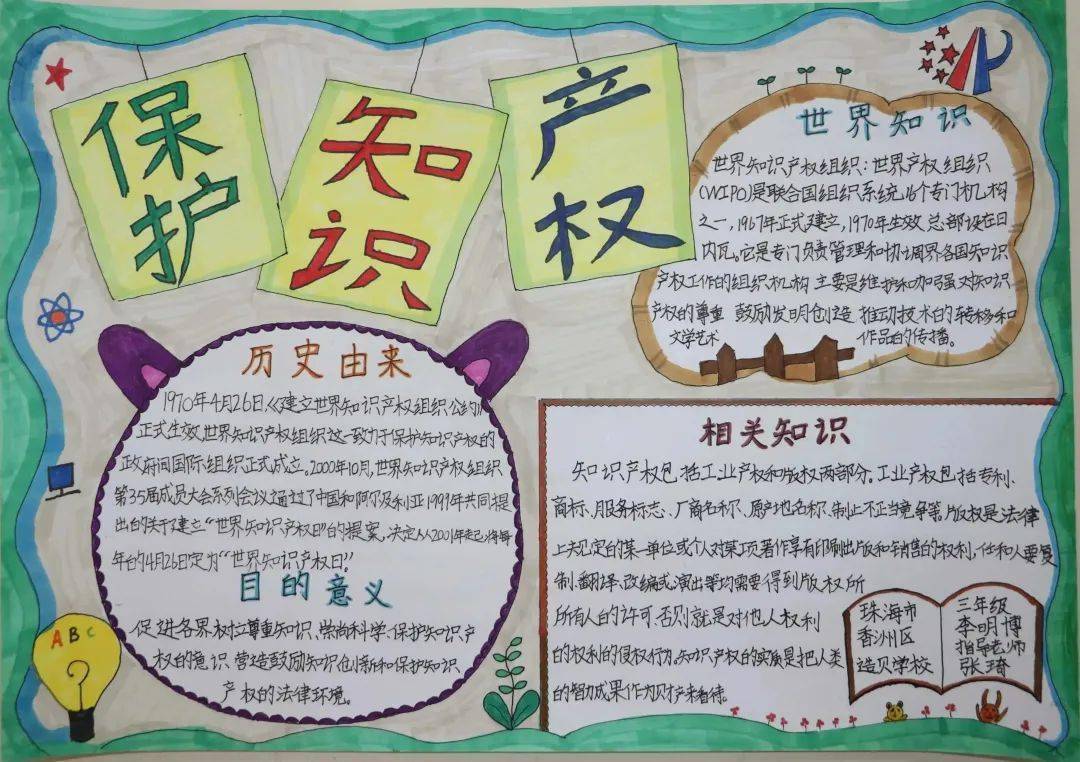 保护
知识
产权
世界知识
世界知识产权组织:世界产权组织
(WIPO)是联合国组织系统16个专门机构
之一,1967年正式建立,1970年生效 总部设在日
内瓦。它是专门负责管理和协调界各国知识
产权工作的组织机构 主要是维护和加强对知识
产权的尊重 鼓励发明创造 推动技术的转移和
文学艺术 作品的传播。
历史由来
1970年4月26日,《建立世界知识产权组织公约》
正式生效,世界知识产权组织这一致力于保护知识产权的
政府间国际组织正式成立。2000年10月,世界知识产权组织
第35届成员大会系列会议通过了中国和阿尔及利亚1999年共同提
出的关于建立“世界知识产权日”的提案,决定从2001年起将每
年的4月26日定为“世界知识产权日”。
目的意义
促进各界树立尊重知识、崇尚科学、保护知识产
权的意识 营造鼓励知识创新和保护知识
产权的法律环境。
相关知识
知识产权包括工业产权和版权两部分。工业产权包括专利、
商标、服务标志、厂商名称、原产地名称、制止不正当竞争等。版权是法律
上规定的某一单位或个人对某项著作享有印刷出版和销售的权利,任和人要复
制、翻译、改编或演出等均需要得到版权所
所有人的许可,否则就是对他人权利
的权利的侵权行为。知识产权的实质是把人类
的智力成果作为财产来看待。
珠海市
香洲区
造贝学校
三年级
李明博
指导老师
张琦
ABC